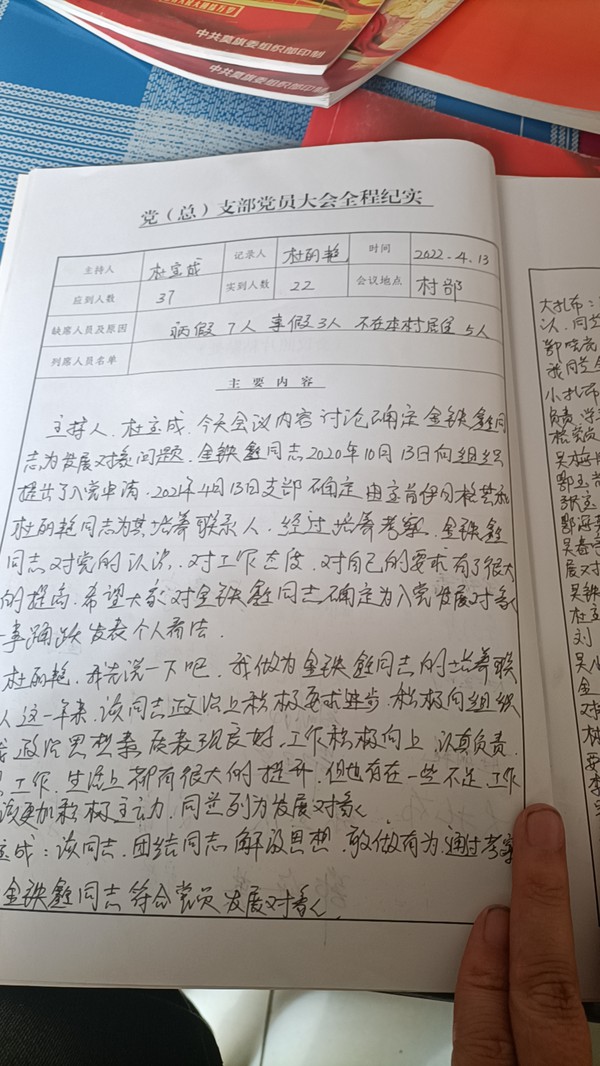 中共莫旗委组织部印制
中共莫旗委组织部印制
党（总）支部党员大会全程纪实
主持人 杜宝成 记录人 杜丽艳 时间 2022.4.13
应到人数 37 实到人数 22 会议地点 村部
缺席人员及原因 病假7人 事假3人 不在本村居住5人
列席人员名单
主要内容
主持人、杜宝成、今天会议内容讨论确定金铁鑫同
志为发展对象问题。金铁鑫同志2020年10月13日向组织
提出了入党申请。2021年4月13日支部确定由
杜丽艳同志为其培养联系人。经过培养考察。金铁鑫
同志、对党的认识、对工作态度、对自己的要求有了很大
的提高。希望大家对金铁鑫同志确定为入党发展对象
一事踊跃发表个人看法。
杜丽艳、我先说一下吧、我做为金铁鑫同志的培养联
人这一年来、该同志政治上积极要求进步、积极向组织
政治思想素质表现良好、工作积极向上、认真负责、
工作、生活上都有很大的提升、但也有在一些不足、工作
该更加积极主动、同意列为发展对象
宝成：该同志、团结同志、解放思想、敢做有为、通过考察
金铁鑫同志符合党员发展对象。
大扎布：
认、同意
我同意金
小扎布
负责、学